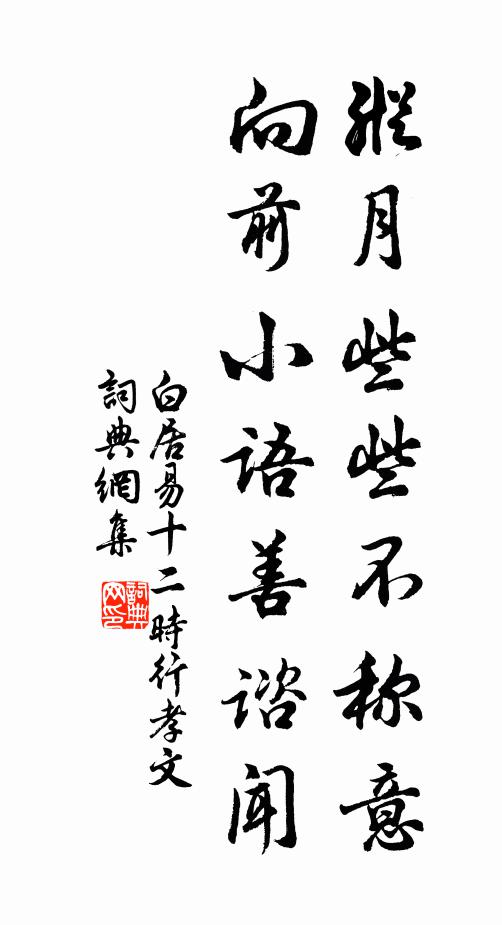 縱月些些不称意
向前小語善谘闻
白居易十二時行孝文
詞典網集
詞典
网印